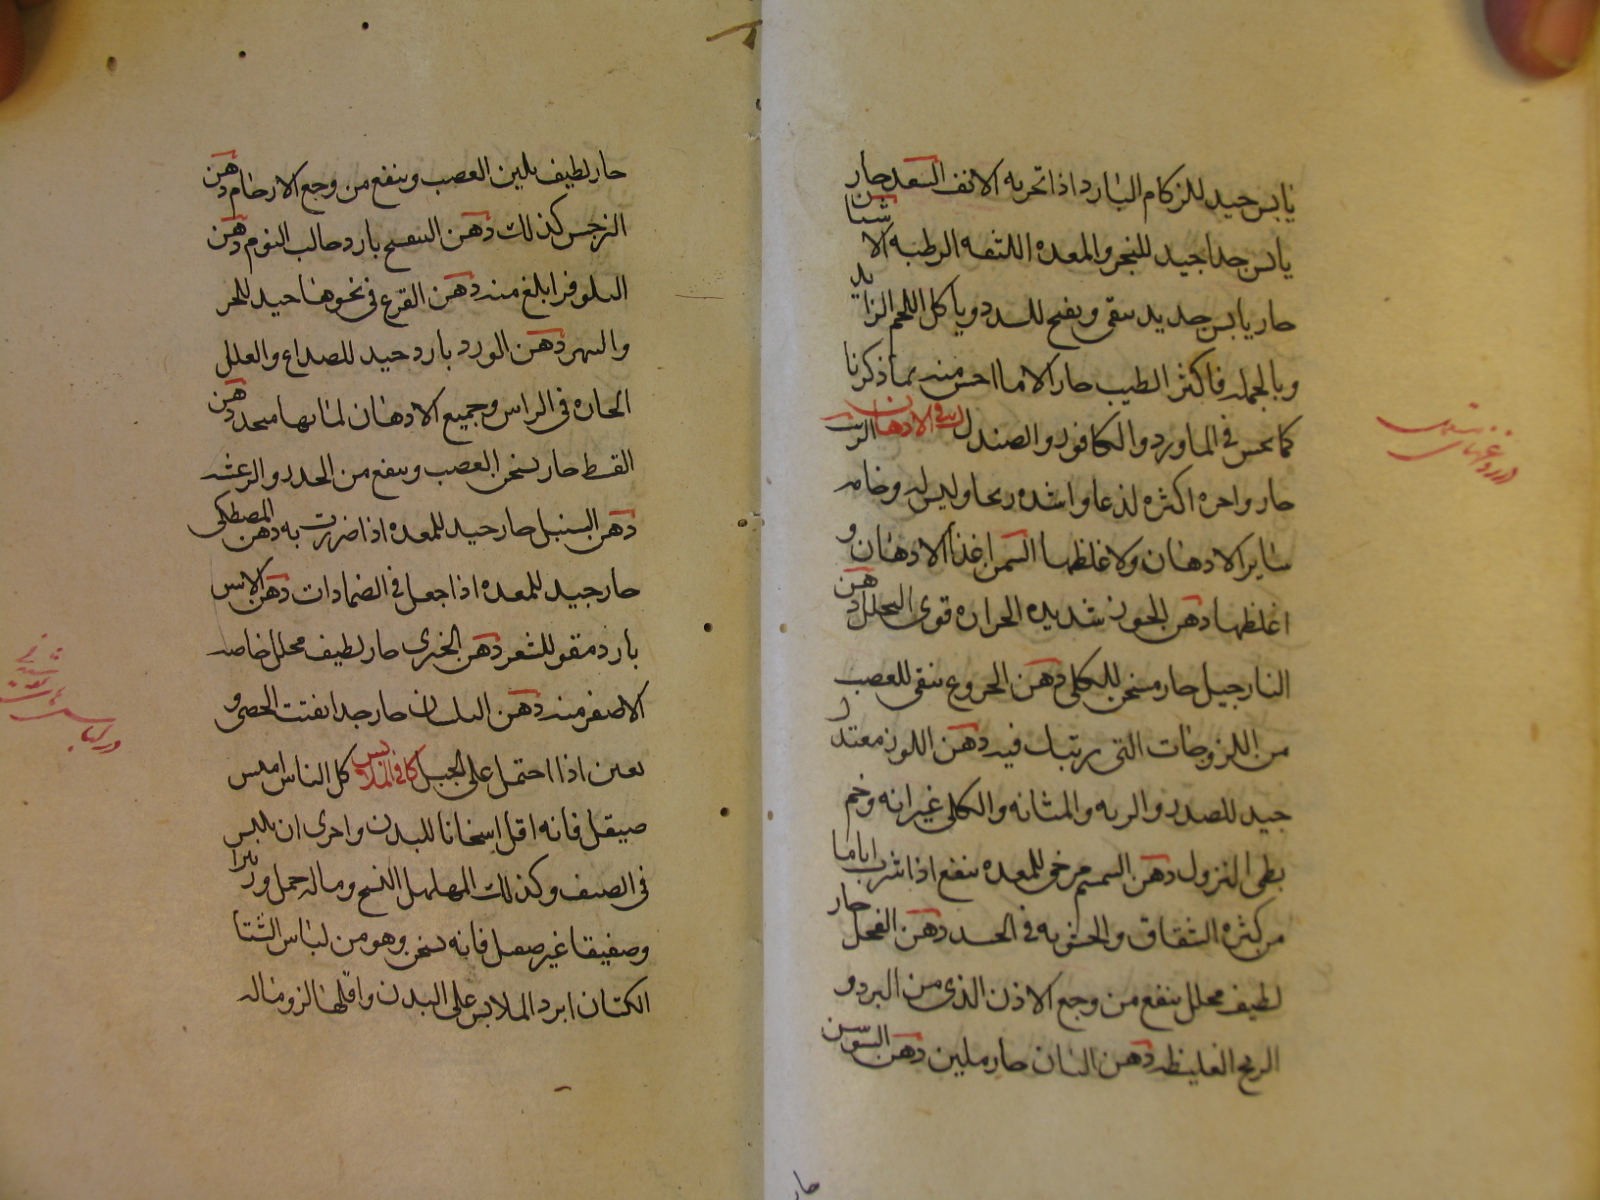 يابس جيد للزكام البارد اذا تخر به الانف السعد حار
يابس جدا جيد للبخر والمعده اللثه الرطبه الاشنان
حار يابس جديد ينقى ويفتح للسدد وياكل اللحم الزايد
وبالجمله فاكثر الطيب حار الا ما احس منه بما ذكرنا
كما يحس فى الماورد والكافور والصندل فى الادهان الزيت
حار واحره اكثره لذعا واشده ريحا وليس له وخامه
ساير الادهان ولا غلظها السمن اغذا الادهان و
اغلظها دهن الجوز شديده الحراره قوى التحلل دهن
النارجيل حار مسخن للكلى دهن الخروع ينقى للعصب
من اللزوجات التى ترتبك فيه دهن اللوز معتدل
جيد للصدر والريه والمثانه والكلى غير انه وخم
بطى النزول دهن السمسم مرخى للمعده ينفع اذا شرب اياما
من كثره الشقاق والخشونه فى الجسد دهن الفجل حار
لطيف محلل ينفع من وجع الاذن الذى من البرد و
الريح الغليظه دهن البان حار ملين دهن السوسن
حار لطيف يلين العصب وينفع من وجع الارحام دهن
النرجس كذلك دهن البنفسج بارد جالب النوم دهن
النيلوفر ابلغ منه دهن القرع فى نحوهما جيد للحر
والسهر دهن الورد بارد جيد للصداع والعلل
الحاره فى الراس وجميع الادهان لما بها دهن
القسط حار يسخن العصب وينفع من الخدر والرعشه
دهن السنبل حار جيد للمعده اذا ضربت به دهن المصطكى
حار جيد للمعده اذا جعل فى الضمادات دهن الاس
بارد مقو للشعر دهن الخيرى حار لطيف محلل خاصه
الاصفر منه دهن البلسان حار جدا يفتت الحصى و
يعين اذا احتمل على الحبل كا فى الملابس كل الناس املس
صيقل فانه اقل اسخانا للبدن واحرى ان يلبس
فى الصيف وكذلك المهلهل النسج وما له خمل وزيبرا
وصفيقا غير صيقل فانه يسخن وهو من لباس الشتا
الكتان ابرد الملابس على البدن واقلها لزوما له